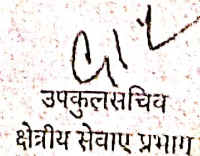 उपकुलसचिव
क्षेत्रीय सेवाए प्रभाग